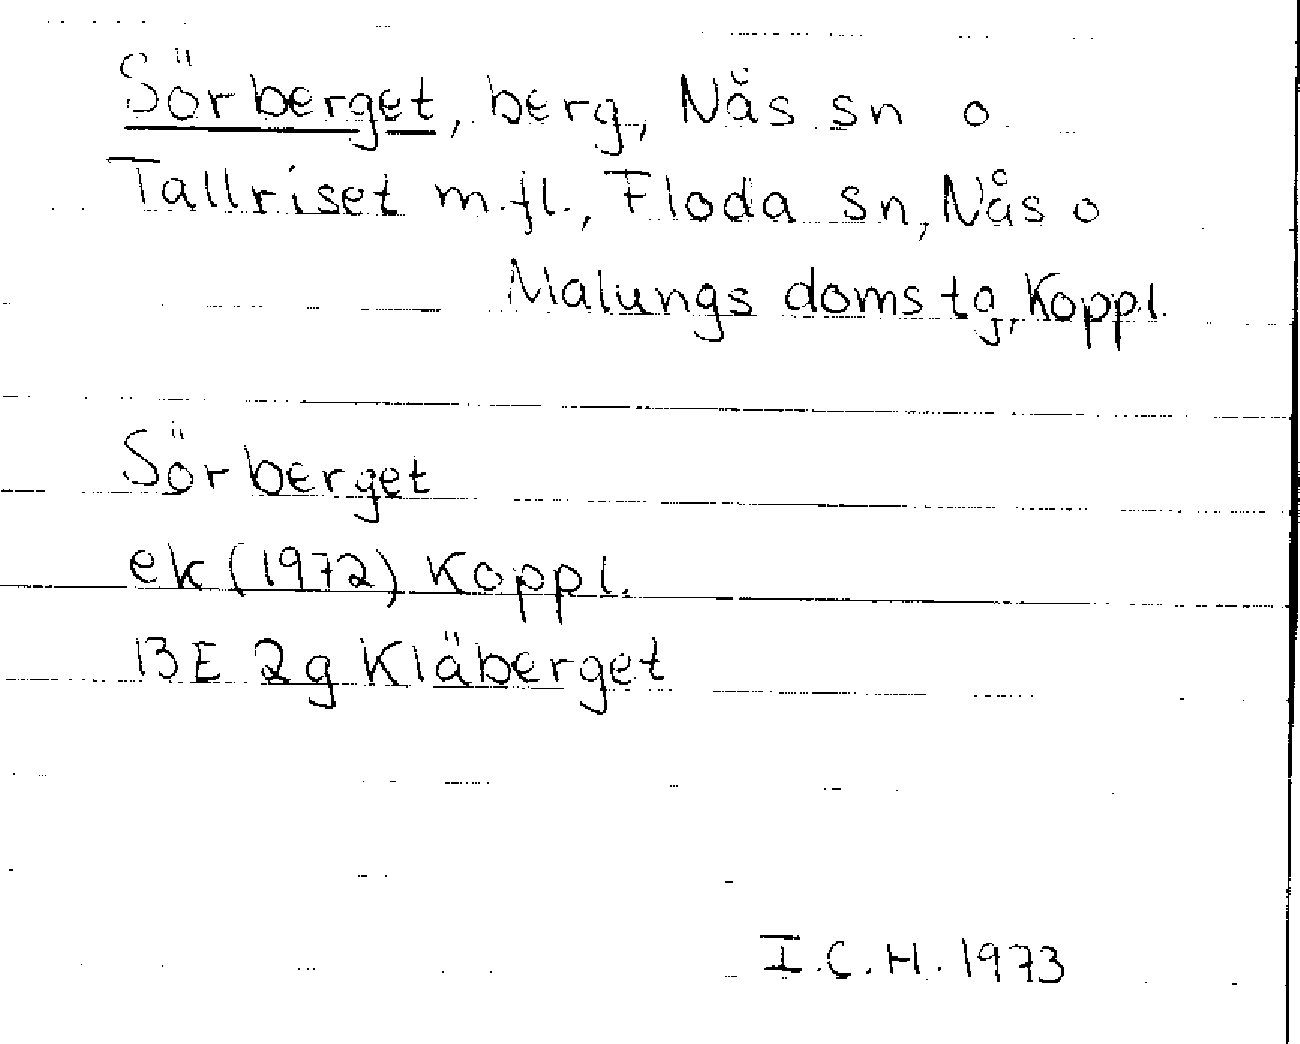 Sörberget, berg, Nås sn o
Tallriset m.fl., Floda sn, Nås o
Malungs domstg, Koppl.
Sörberget
ek (1972) Koppl.
13E 2g Kläberget
I.C.H. 1973